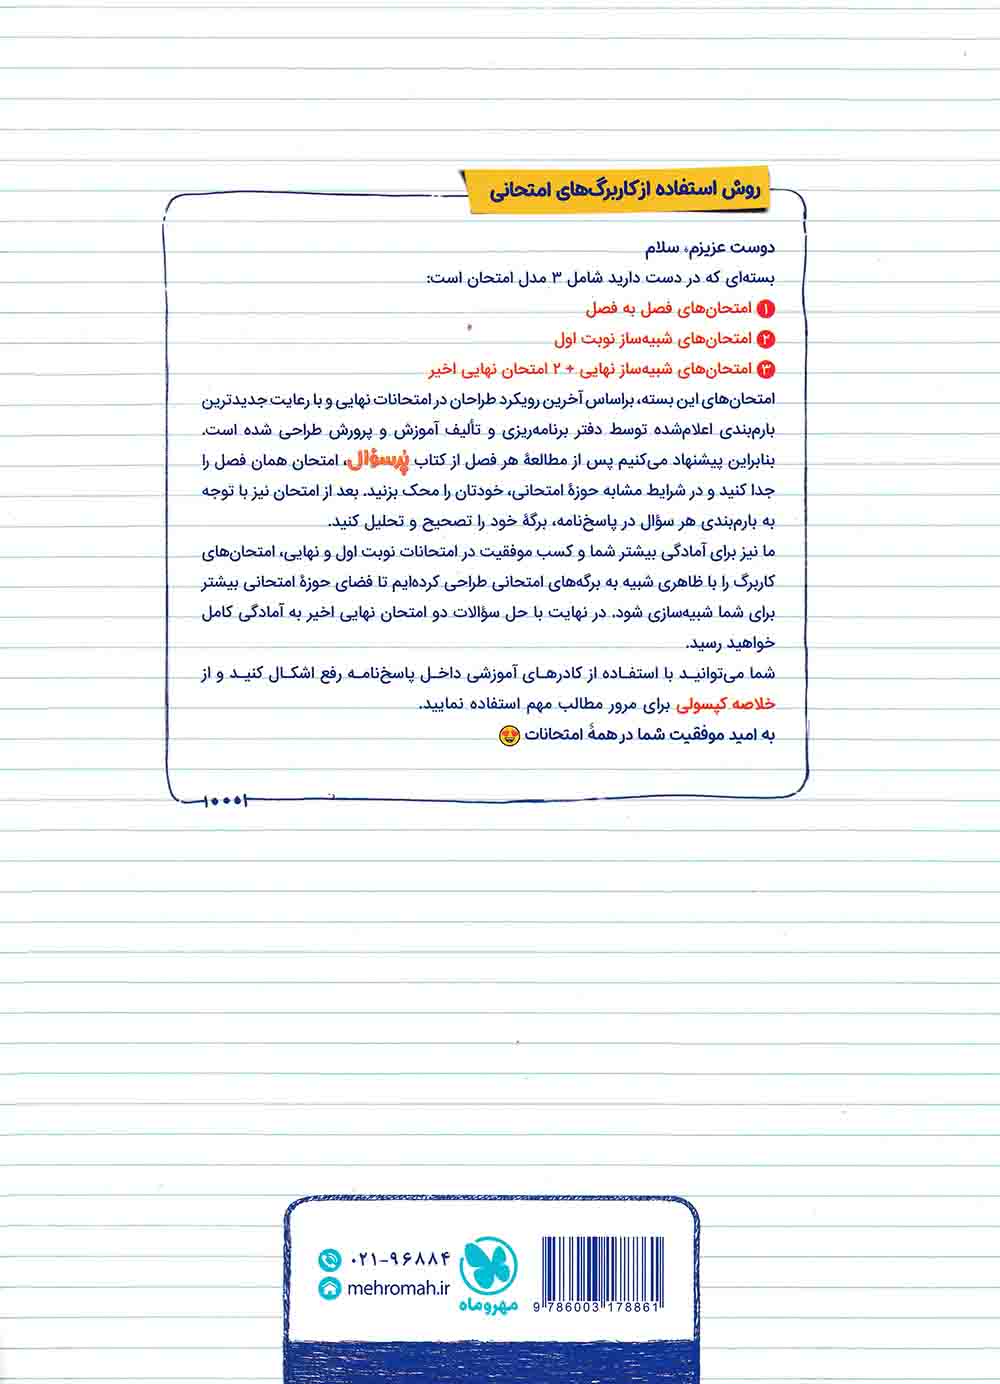 روش استفاده از کاربرگ‌های امتحانی
دوست عزیزم، سلام
بسته‌ای که در دست دارید شامل ۳ مدل امتحان است:
۱ امتحان‌های فصل به فصل
۲ امتحان‌های شبیه‌ساز نوبت اول
۳ امتحان‌های شبیه‌ساز نهایی + ۲ امتحان نهایی اخیر
امتحان‌های این بسته، براساس آخرین رویکرد طراحان در امتحانات نهایی و با رعایت جدیدترین
بارم‌بندی اعلام‌شده توسط دفتر برنامه‌ریزی و تألیف آموزش و پرورش طراحی شده است.
بنابراین پیشنهاد می‌کنیم پس از مطالعهٔ هر فصل از کتاب پُرسؤال، امتحان همان فصل را
جدا کنید و در شرایط مشابه حوزهٔ امتحانی، خودتان را محک بزنید. بعد از امتحان نیز با توجه
به بارم‌بندی هر سؤال در پاسخ‌نامه، برگهٔ خود را تصحیح و تحلیل کنید.
ما نیز برای آمادگی بیشتر شما و کسب موفقیت در امتحانات نوبت اول و نهایی، امتحان‌های
کاربرگ را با ظاهری شبیه به برگه‌های امتحانی طراحی کرده‌ایم تا فضای حوزهٔ امتحانی بیشتر
برای شما شبیه‌سازی شود. در نهایت با حل سؤالات دو امتحان نهایی اخیر به آمادگی کامل
خواهید رسید.
شما می‌توانید با استفاده از کادرهای آموزشی داخل پاسخ‌نامه رفع اشکال کنید و از
خلاصه کپسولی برای مرور مطالب مهم استفاده نمایید.
به امید موفقیت شما در همهٔ امتحانات
۰۲۱-۹۶۸۸۴
mehromah.ir
مهروماه
9 786003 178861